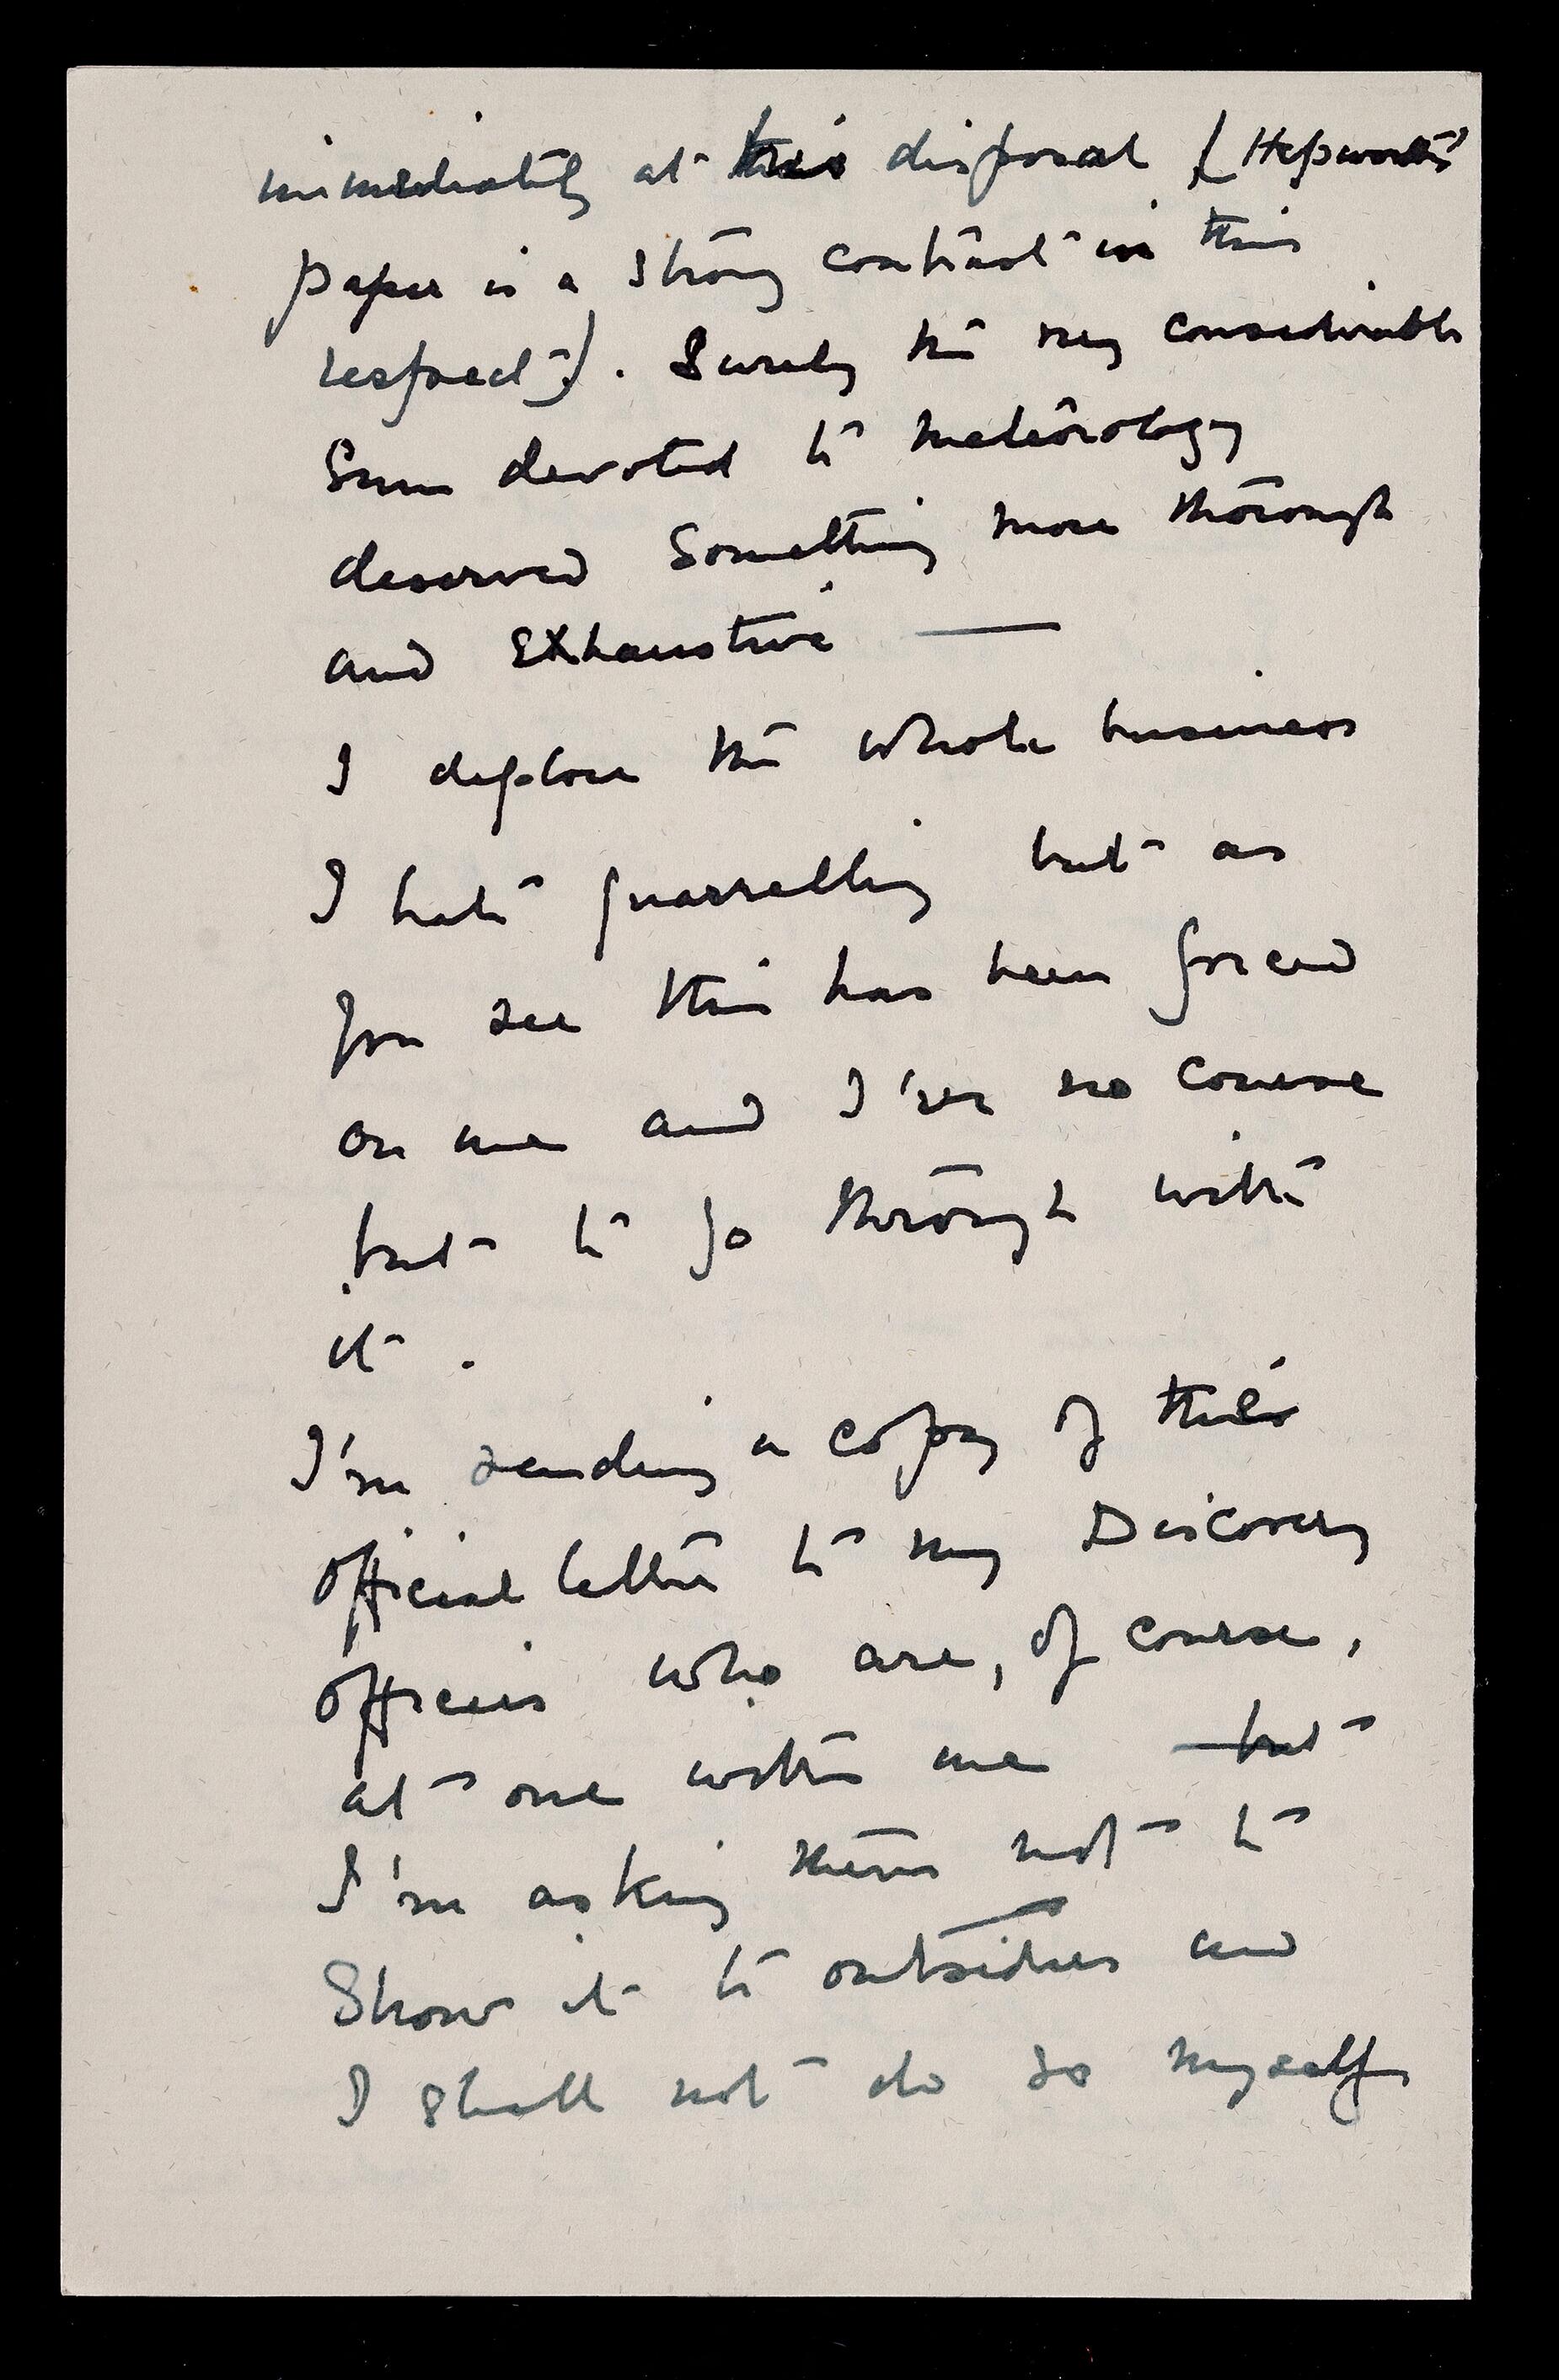 immediately at his disposal (Hepworth's
paper is a strong contrast in this
respect). Surely the very considerable
sum devoted to meteorology
deserved something more thorough
and exhaustive —
I deplore the whole business
I hate quarrelling but as
you see this has been forced
on me and I've no course
but to go through with
it.
I'm sending a copy of this
official letter to my Discovery
officers who are, of course,
at one with me — but
I'm asking them not to
show it to outsiders and
I shall not do so myself